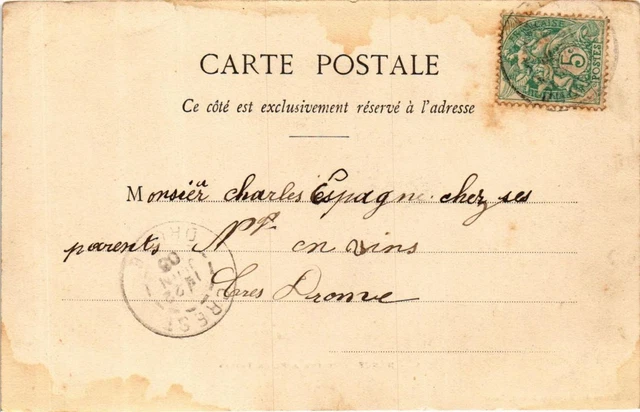 CARTE POSTALE
Ce côté est exclusivement réservé à l'adresse
Monsieur charles Espagne chez ses
parents N^t en vins
Drome
5
POSTES
CREST
DROME